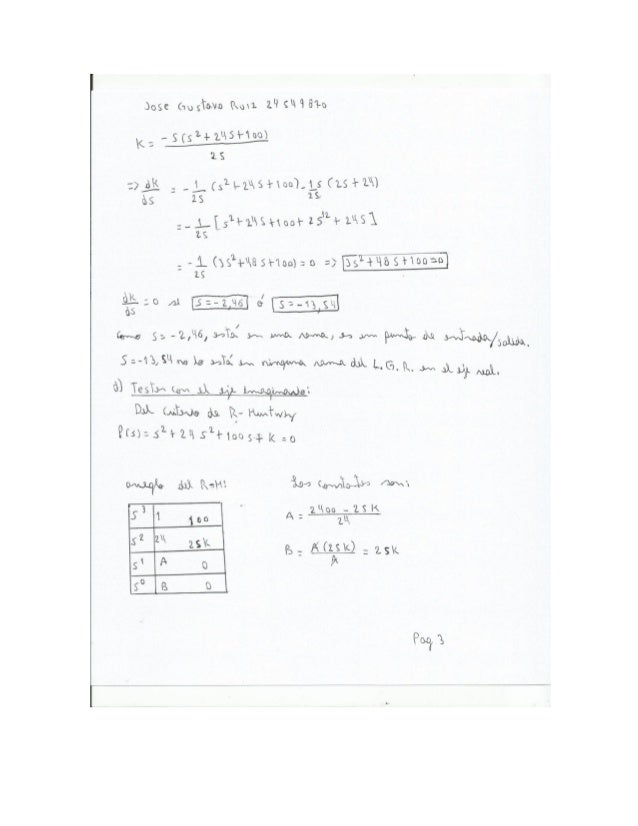 Jose Gustavo Ruiz 24549870
K = -S(S²+24S+100) / 25
=> dk/ds = -1/25 (S²+24S+100) - 1S/25 (2S+24)
= -1/25 [S²+24S+100+2S² + 24S]
= -1/25 (3S²+48S+100) = 0 => 3S²+48S+100=0
dk/ds = 0 si S=-2,46 ó S=-13,54
Como S=-2,46, está en una rama, es un punto de entrada/salida.
S=-13,54 no lo está en ninguna rama del L.G.R. en el eje real.
d) con el eje Imaginario:
Del Criterio de R-Hurtwz
P(s) = S² + 24 S² + 100 S + K = 0
arreglo del R-H:
S³ 1 100
S² 24 25K
S¹ A 0
S⁰ B 0
Las constates son:
A = 2400 - 25K / 24
B = A(25K) / A = 25K
Pag 3